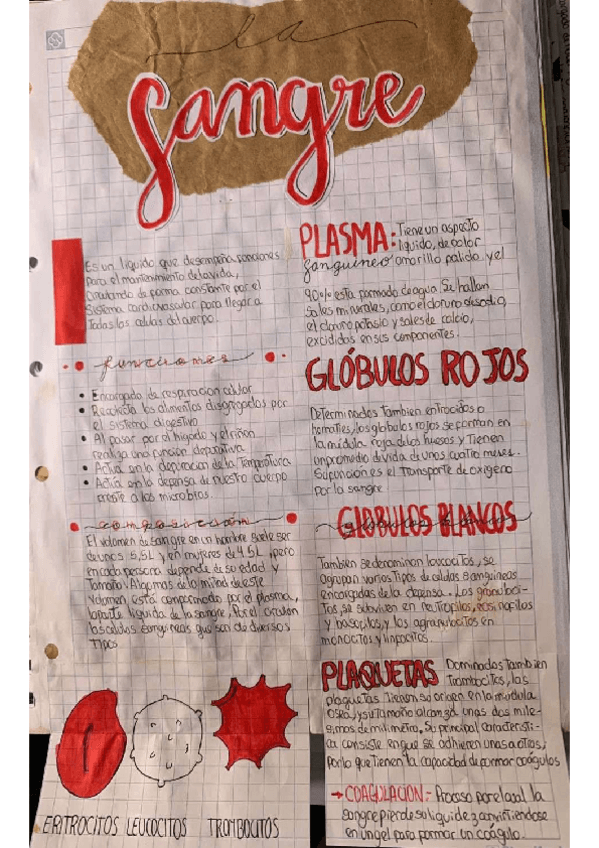 la
Sangre
Es un liquido que desempeña funciones
para el mantenimiento de la vida,
circulando de forma constante por el
Sistema cardiovascular para llegar a
todas las celulas del cuerpo.
funciones
• Encargada de respiracion celular
• Recolecta los alimentos disgregados por
el sistema digestivo
• Al pasar por el higado y el riñon
realiza una funcion depurativa
• Actua en la depuracion de la Temperatura
• Actua en la defensa de nuestro cuerpo
frente a los microbios.
composición
El volumen de sangre en un hombre suele ser
de unos 5,5L y en mujeres de 4.5L, pero
en cada persona depende de su edad y
Tamaño. Algo mas de la mitad de este
Volumen, está conformado por el plasma,
la parte liquida de la sangre. Por el circulan
las celulas sanguineas que son de diversos
Tipos
ERITROCITOS LEUCOCITOS TROMBOCITOS
PLASMA: Tiene un aspecto
liquido, de color
sanguineo amarillo palido y el
90% esta formado de agua. Se hallan
sales minerales, como el cloruro de sodio,
el cloruro potasio y sales de calcio,
en sus componentes.
GLÓBULOS ROJOS
Tambien eritrocitos o
hematies, los globulos rojos se forman en
la médula roja de los huesos y Tienen
un promedio de vida de unos cuatro meses.
Su funcion es el Transporte de oxigeno
por la sangre
GLOBULOS BLANCOS
Tambien se denominan leucocitos, se
agrupan varios Tipos de celulas sanguineas
encargadas de la defensa. Los granuloci-
tos, se subdividen en neutrofilos, eosinofilos
y basofilos, y los agranulocitos en
monocitos y linfocitos.
PLAQUETAS Dominados Tambien
Trombocitos, las
plaquetas Tienen su origen en la médula
osea, y su tamaño alcanza unas dos mile-
simas de milimetro. Su principal caracteristi-
ca consiste en que se adhieren unas a otras,
por lo que Tienen la capacidad de formar coagulos
→ COAGULACION:- Proceso por el cual la
sangre pierde su liquidez convirtiendose
en un gel para formar un coágulo.